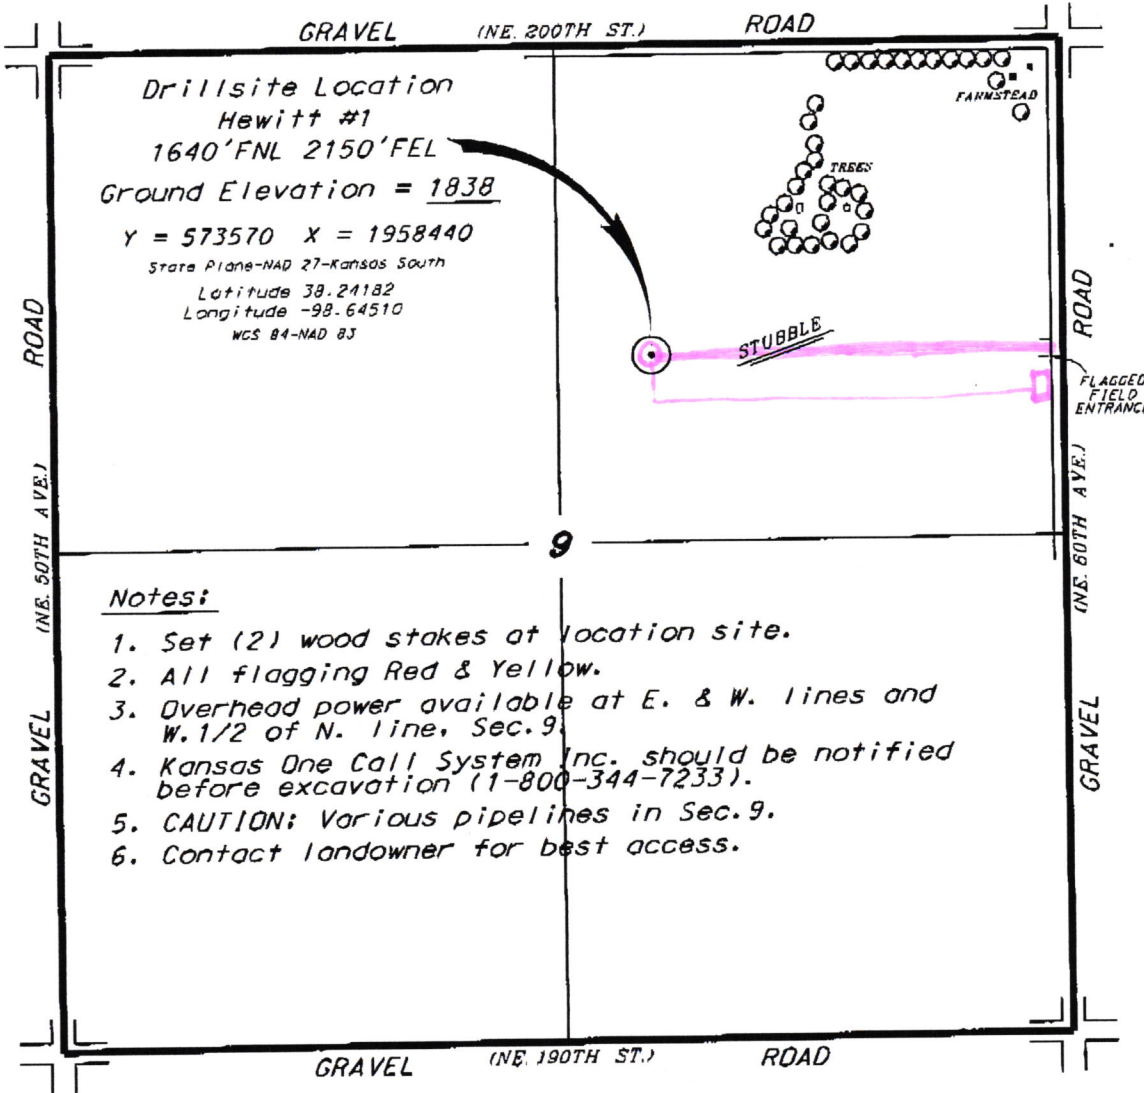 GRAVEL (NE. 200TH ST.) ROAD
Drillsite Location
Hewitt #1
1640'FNL 2150'FEL
Ground Elevation = 1838
Y = 573570 X = 1958440
State Plane-NAD 27-Kansas South
Latitude 38.24182
Longitude -98.64510
WGS 84-NAD 83
FARMSTEAD
TREES
STUBBLE
FLAGGED
FIELD
ENTRANCE
ROAD
(NE. 50TH AVE.)
GRAVEL
ROAD
(NE. 60TH AVE.)
GRAVEL
9
Notes:
1. Set (2) wood stakes at location site.
2. All flagging Red & Yellow.
3. Overhead power available at E. & W. lines and
W.1/2 of N. line, Sec.9.
4. Kansas One Call System Inc. should be notified
before excavation (1-800-344-7233).
5. CAUTION: Various pipelines in Sec.9.
6. Contact landowner for best access.
GRAVEL (NE. 190TH ST.) ROAD